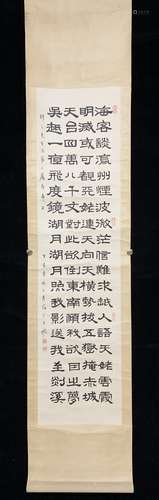 海客談瀛州煙波微茫信難求越人語天姥雲霞
明滅或可覩天姥連天向天橫勢拔五嶽掩赤城
天台四萬八千丈對此欲倒東南傾我欲因之夢
吳越一夜飛度鏡湖月湖月照我影送我至剡溪